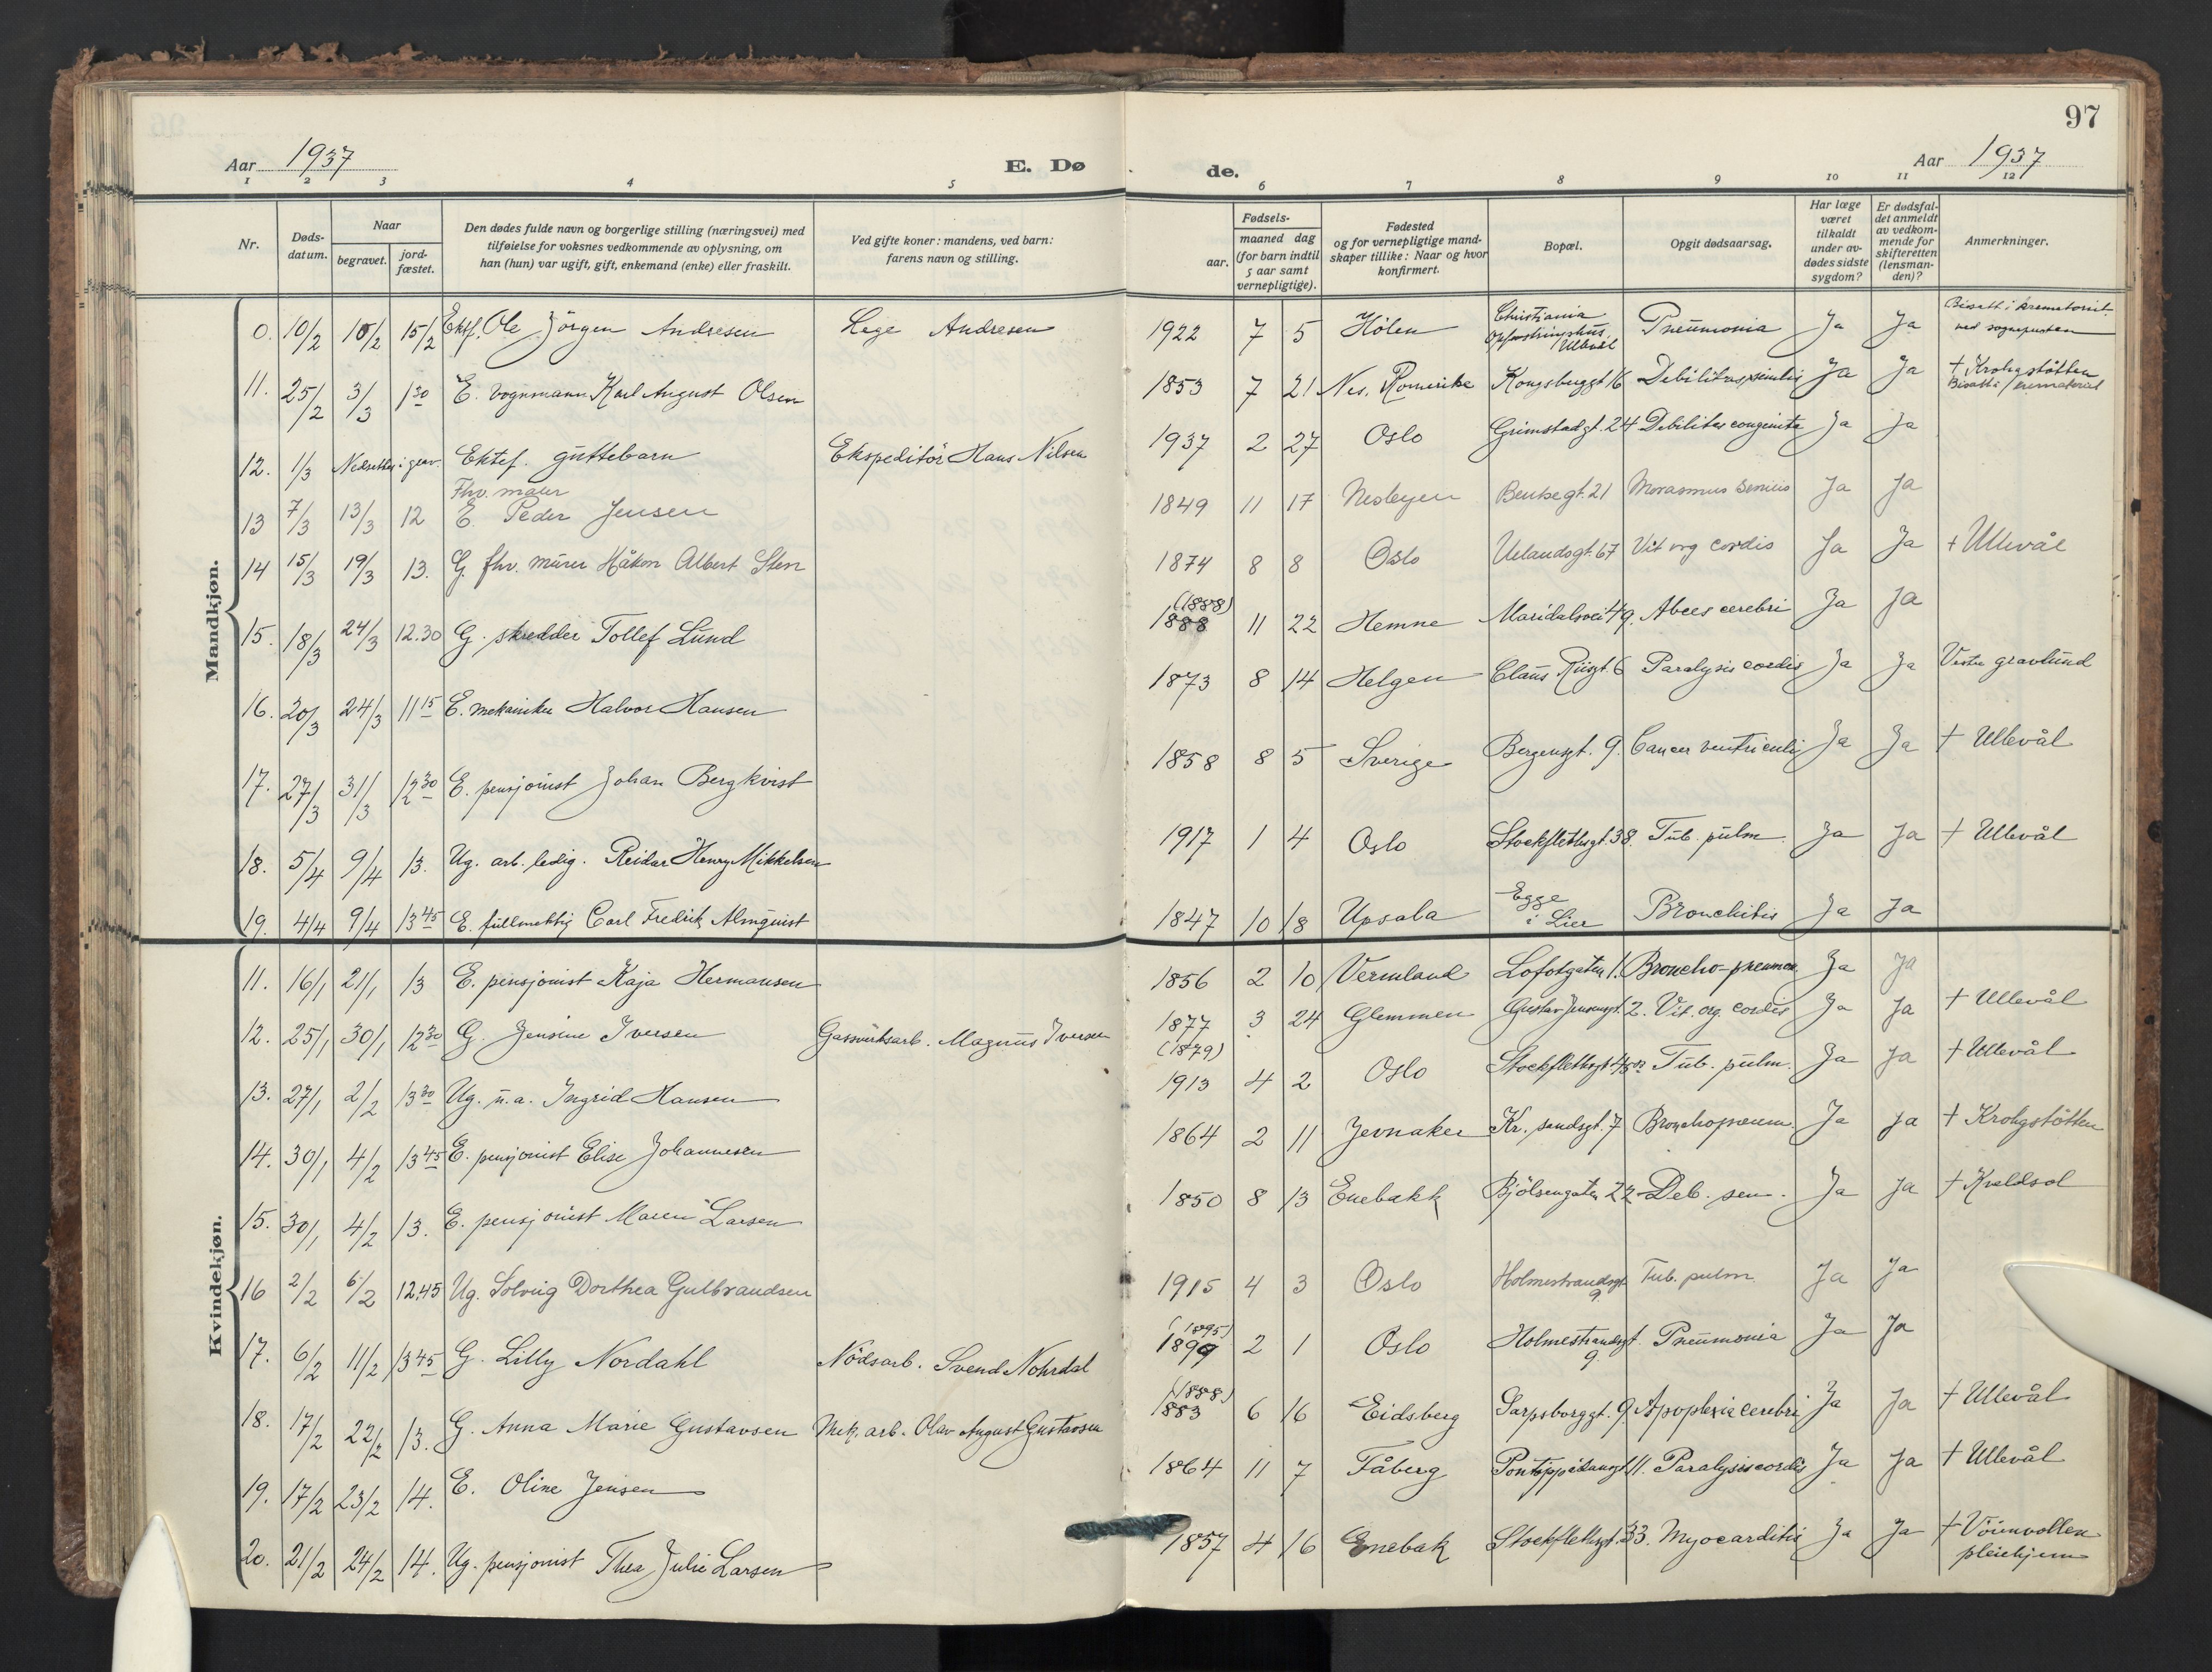 97
Aar 1937 E. Dø de. Aar 1937
1 2 3 4 5 6 7 8 9 10 11 12
Nr. Døds-datum. Naar begravet. jord-fæstet. Den dødes fulde navn og borgerlige stilling (næringsvei) med tilføielse for voksnes vedkommende av oplysning, om han (hun) var ugift, gift, enkemand (enke) eller fraskilt. Ved gifte koner: mandens, ved barn: farens navn og stilling. Fødsels- aar. maaned dag (for barn indtil 5 aar samt vernepligtige). Fødested og for vernepligtige mandskaper tillike: Naar og hvor konfirmert. Bopæl. Opgit dødsaarsag. Har læge været tilkaldt under avdødes sidste sygdom? Er dødsfaldet anmeldt av vedkommende for skifteretten (lensmanden)? Anmerkninger.
Mandkjøn.
0. 10/2 15/2 15/2 Ektf. Ole Jörgen Andresen Lege Andresen 1922 7 5 Hölen Christiania Opfostringshus, Ullevål Pneumonia Ja Ja Bisatt i krematoriet ved sognepresten
11. 25/2 3/3 1 30 E. vognmann Karl August Olsen 1853 7 21 Nes, Romerike Kongsberggt 16 Debilitas senilis Ja Ja + Krohgstötten Bisatt i krematoriet
12. 1/3 Nedsettes i grav. Ektef. guttebarn Ekspeditör Hans Nilsen 1937 2 27 Oslo Grimstadgt. 24 Debilitas congenita Ja Ja
13 7/3 13/3 12 Fhv. maler E. Peder Jensen 1849 11 17 Nesbyen Bentsegt. 21 Marasmus senilis Ja Ja
14 15/3 19/3 13. G. fhv. murer Håkon Albert Sten 1874 8 8 Oslo Uelandsgt. 67 Vit org cordis Ja Ja + Ullevål
15. 18/3 24/3 12.30 G. skredder Tollef Lund (1888) 1888 11 22 Hemne Maridalsvei 49. Abces cerebri Ja Ja
16. 20/3 24/3 11 15 E. mekaniker Halvor Hansen 1873 8 14 Helgen Claus Riisgt. 6 Paralysis cordis Ja Ja Vestre gravlund
17. 27/3 31/3 12 30 E. pensjonist Johan Bergkvist 1858 8 5 Sverige Bergensgt. 9. Cancer ventriculi Ja Ja + Ullevål
18. 5/4 9/4 13. Ug. arb. ledig. Reidar Henry Mikkelsen 1917 1 4 Oslo Stockflethsgt. 38. Tub. pulm. Ja Ja + Ullevål
19. 4/4 9/4 13 45 E. fullmektig Carl Fredrik Almquist 1847 10 18 Upsala Egge i Lier Bronchitis Ja Ja
Kvindekjøn.
11. 16/1 21/1 13 E. pensjonist Kaja Hermansen 1856 2 10 Vermland Lofotgaten 1. Broncho-pneumon. Ja Ja
12. 25/1 30/1 12 30 G. Jensine Iversen Gassverksarb. Magnus Iversen 1877 (1879) 3 24 Glemmen Gustav Jensensgt. 2. Vit. org. cordis Ja Ja + Ullevål
13. 27/1 2/2 13 30 Ug. u. a. Ingrid Hansen 1913 4 2 Oslo Stockflethsgt 45 Tub. pulm. Ja Ja + Ullevål
14. 30/1 4/2 13 45 E. pensjonist Elise Johannesen 1864 2 11 Jevnaker Kr. sandsgt. 7 Bronchopneum. Ja Ja + Krohgstötten
15. 30/1 4/2 13. E. pensjonist Maren Larsen 1850 8 13 Enebakk Bjölsengaten 22 Deb. sen. Ja Ja + Kveldsol
16 2/2 6/2 12.45 Ug. Solveig Dorthea Gulbrandsen 1915 4 3 Oslo Holmestrandsgt. 9. Tub. pulm. Ja Ja
17. 6/2 11/2 13 45 G. Lilly Nordahl Nödsarb. Svend Nohrdal (1895) 1899 2 1 Oslo Holmestrandsgt. 9. Pneumonia Ja Ja
18. 17/2 22/2 13. G. Anna Marie Gustavsen Mek. arb. Olav August Gustavsen (1888) 1883 6 16 Eidsberg Sarpsborggt. 9 Apoplexia cerebri Ja Ja + Ullevål
19. 17/2 23/2 14. E. Oline Jensen 1864 11 7 Fåberg Pontoppidansgt. 11. Paralysis cordis Ja Ja + Ullevål
20. 21/2 24/2 14. Ug. pensjonist Thea Julie Larsen 1857 4 16 Enebak Stockflethsgt. 33. Myocarditis Ja Ja + Vöienvollen pleiehjem